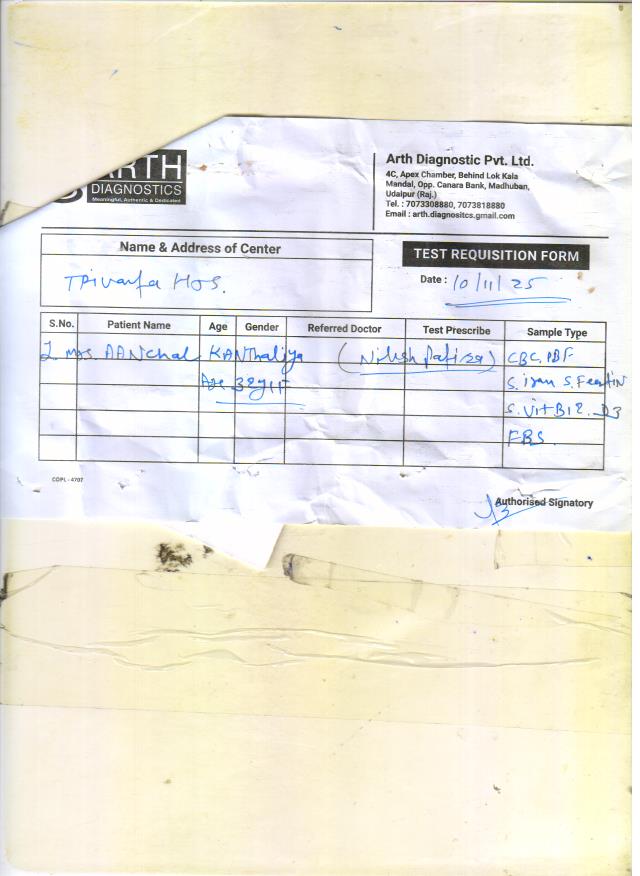 ARTH
DIAGNOSTICS
Meaningful, Authentic & Dedicated
Arth Diagnostic Pvt. Ltd.
4C, Apex Chamber, Behind Lok Kala
Mandal, Opp. Canara Bank, Madhuban,
Udaipur (Raj.)
Tel. : 7073308880, 7073818880
Email : arth.diagnositcs.gmail.com
Name & Address of Center
TEST REQUISITION FORM
Hos.
Date : 10/11/25
S.No. Patient Name Age Gender Referred Doctor Test Prescribe Sample Type
1 Mrs AANChal KANThaliya (Nilesh CBC, PBF
Age 32y/F S. iron S.
S. Vit B12. D3
FBS.
COPL - 4707
Authorised Signatory